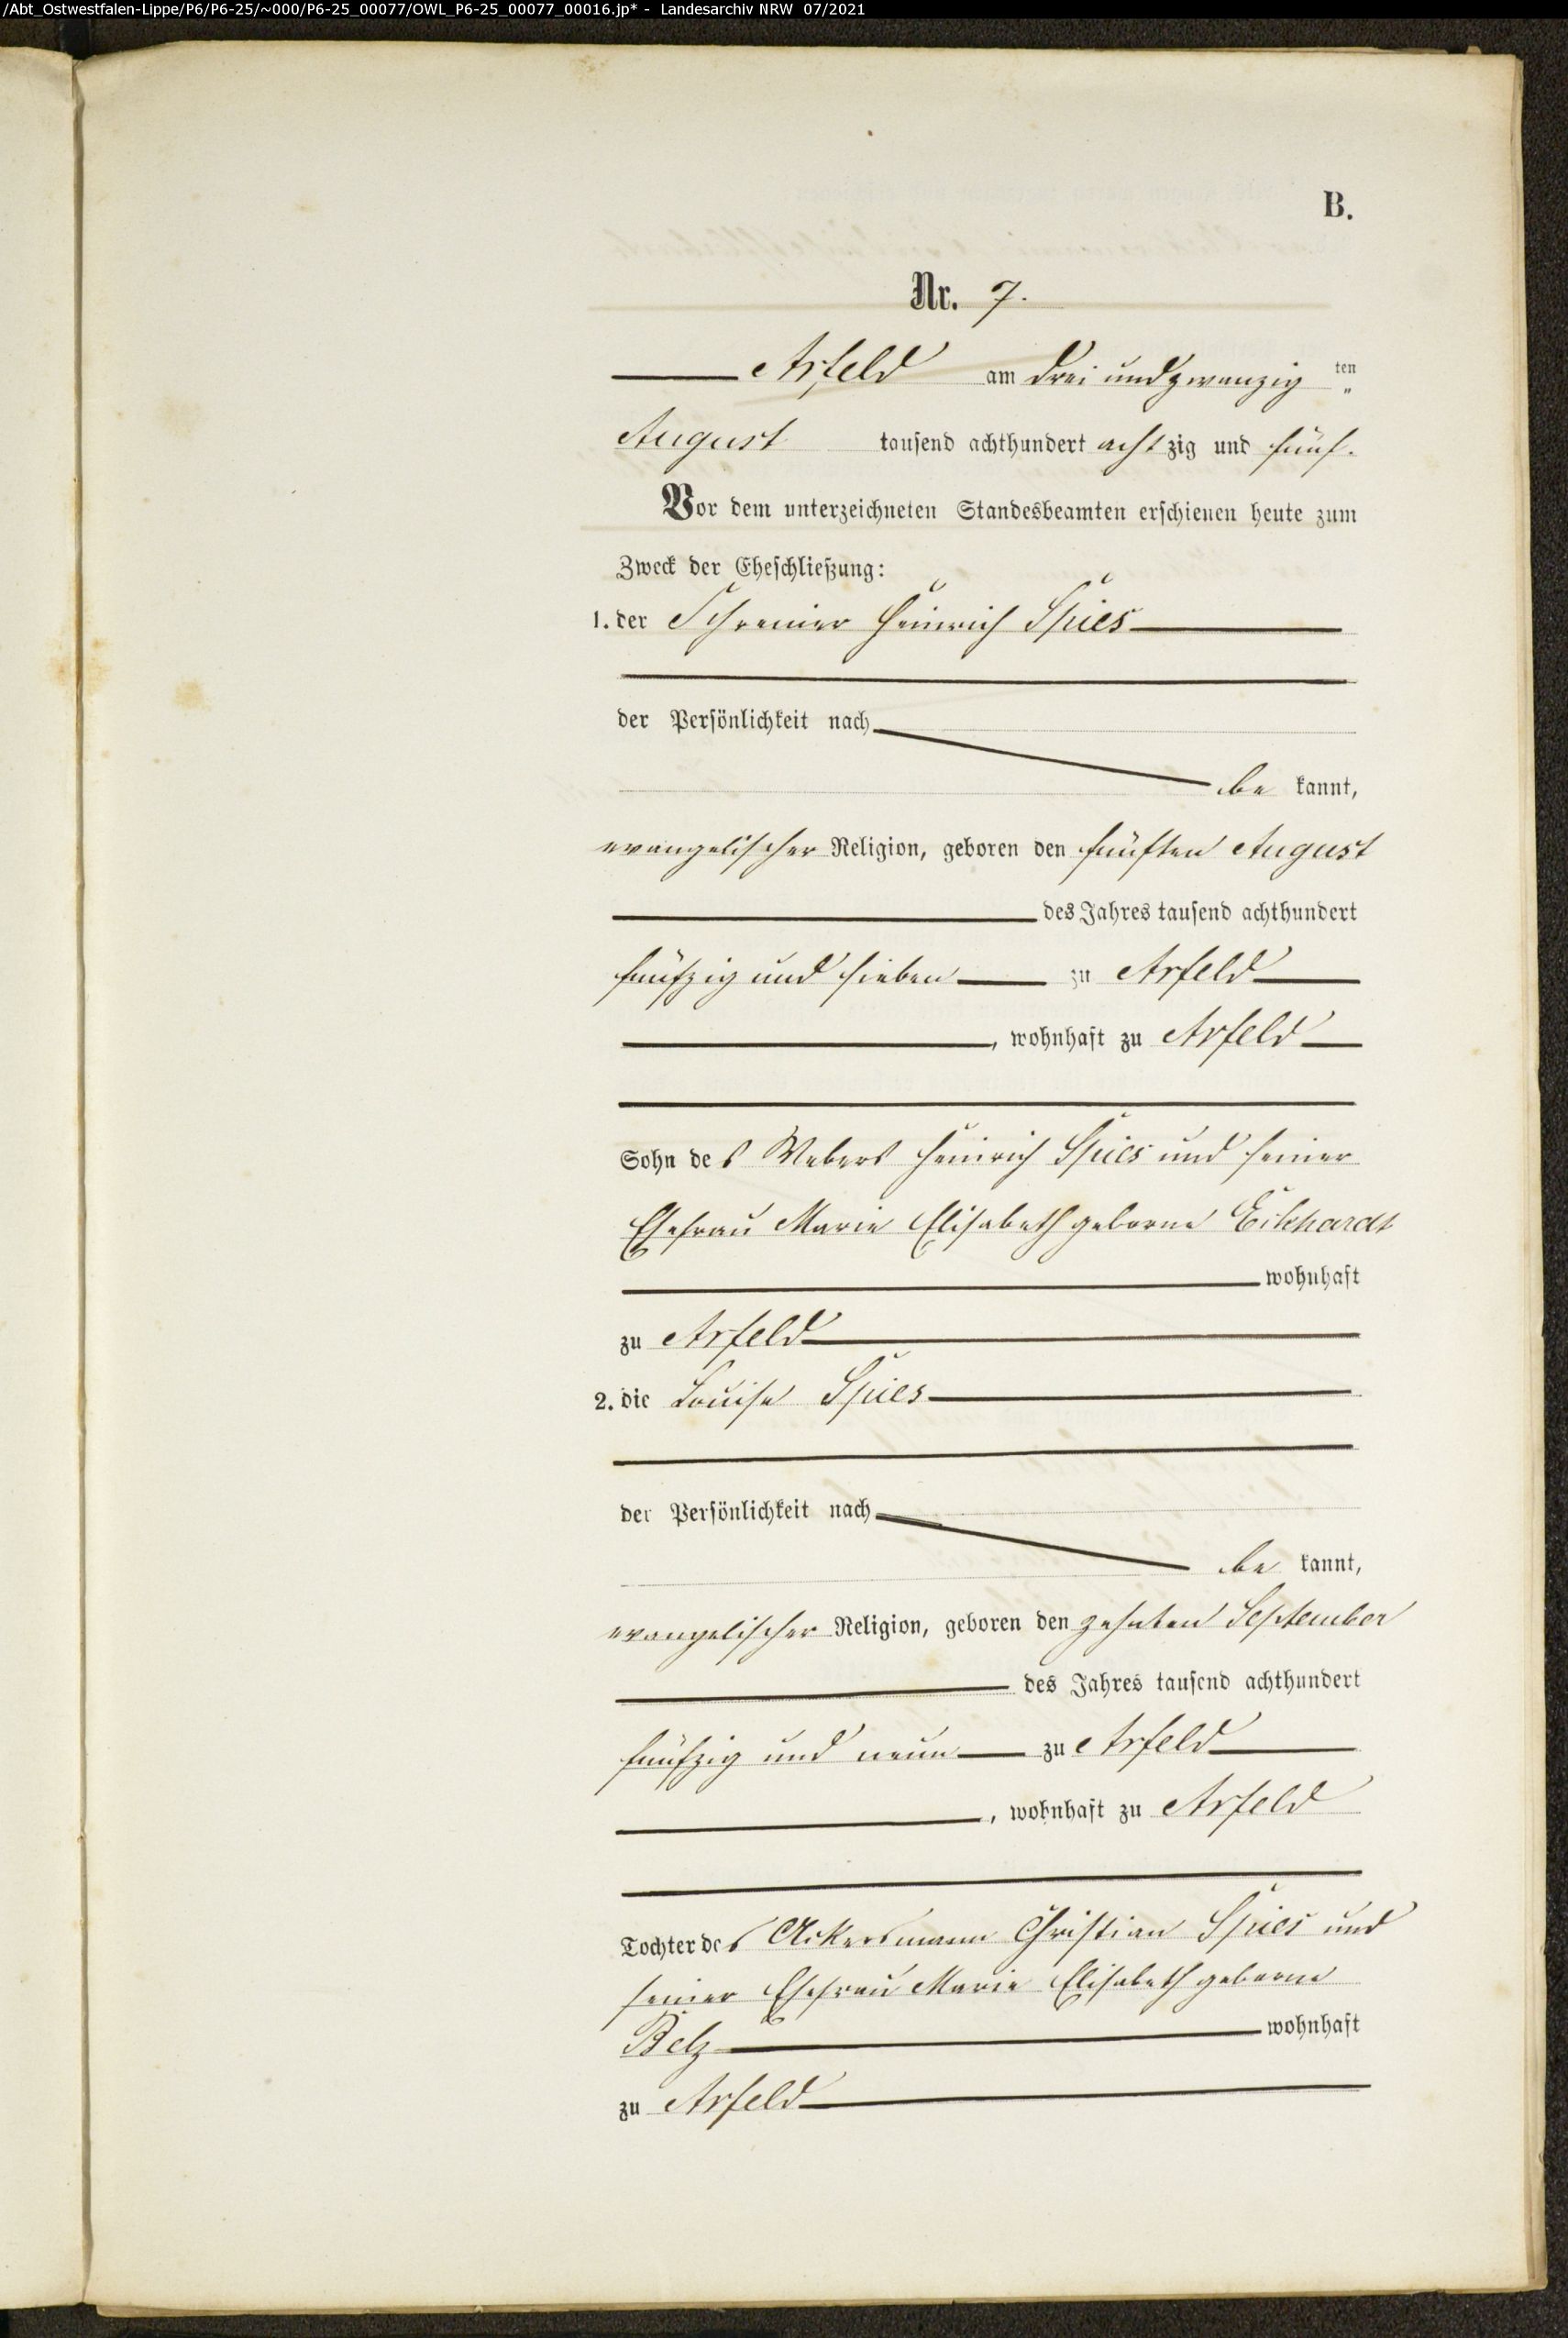 /Abt_Ostwestfalen-Lippe/P6/P6-25/~000/P6-25_00077/OWL_P6-25_00077_00016.jp* - Landesarchiv NRW 07/2021
B.
Nr. 7.
Arfeld am drei und zwanzig ten
August tausend achthundert achtzig und fünf.
Vor dem unterzeichneten Standesbeamten erschienen heute zum
Zweck der Eheschließung:
1. der Schreiner Heinrich Spies
der Persönlichkeit nach
be kannt,
evangelischer Religion, geboren den fünften August
des Jahres tausend achthundert
fünfzig und sieben zu Arfeld
, wohnhaft zu Arfeld
Sohn des Webers Heinrich Spies und seiner
Ehefrau Marie Elisabeth geborne Eikhardt
wohnhaft
zu Arfeld
2. die Louise Spies
der Persönlichkeit nach
be kannt,
evangelischer Religion, geboren den zehnten September
des Jahres tausend achthundert
fünfzig und neun zu Arfeld
, wohnhaft zu Arfeld
Tochter des Ackersmann Christian Spies und
seiner Ehefrau Marie Elisabeth geborne
Belz wohnhaft
zu Arfeld